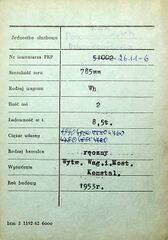 Jednostka służbowa
Nr inwentarza PKP 51002 26.11-6
Szerokość toru 785mm
Rodzaj wagonu Wh
Ilość osi 2
Ładowność w t. 8,5t.
Ciężar własny 4460
Rodzaj hamulca ręczny
Wytwórnia Wytw. Wag.i.Most.
Konstal.
Rok budowy 1953r.